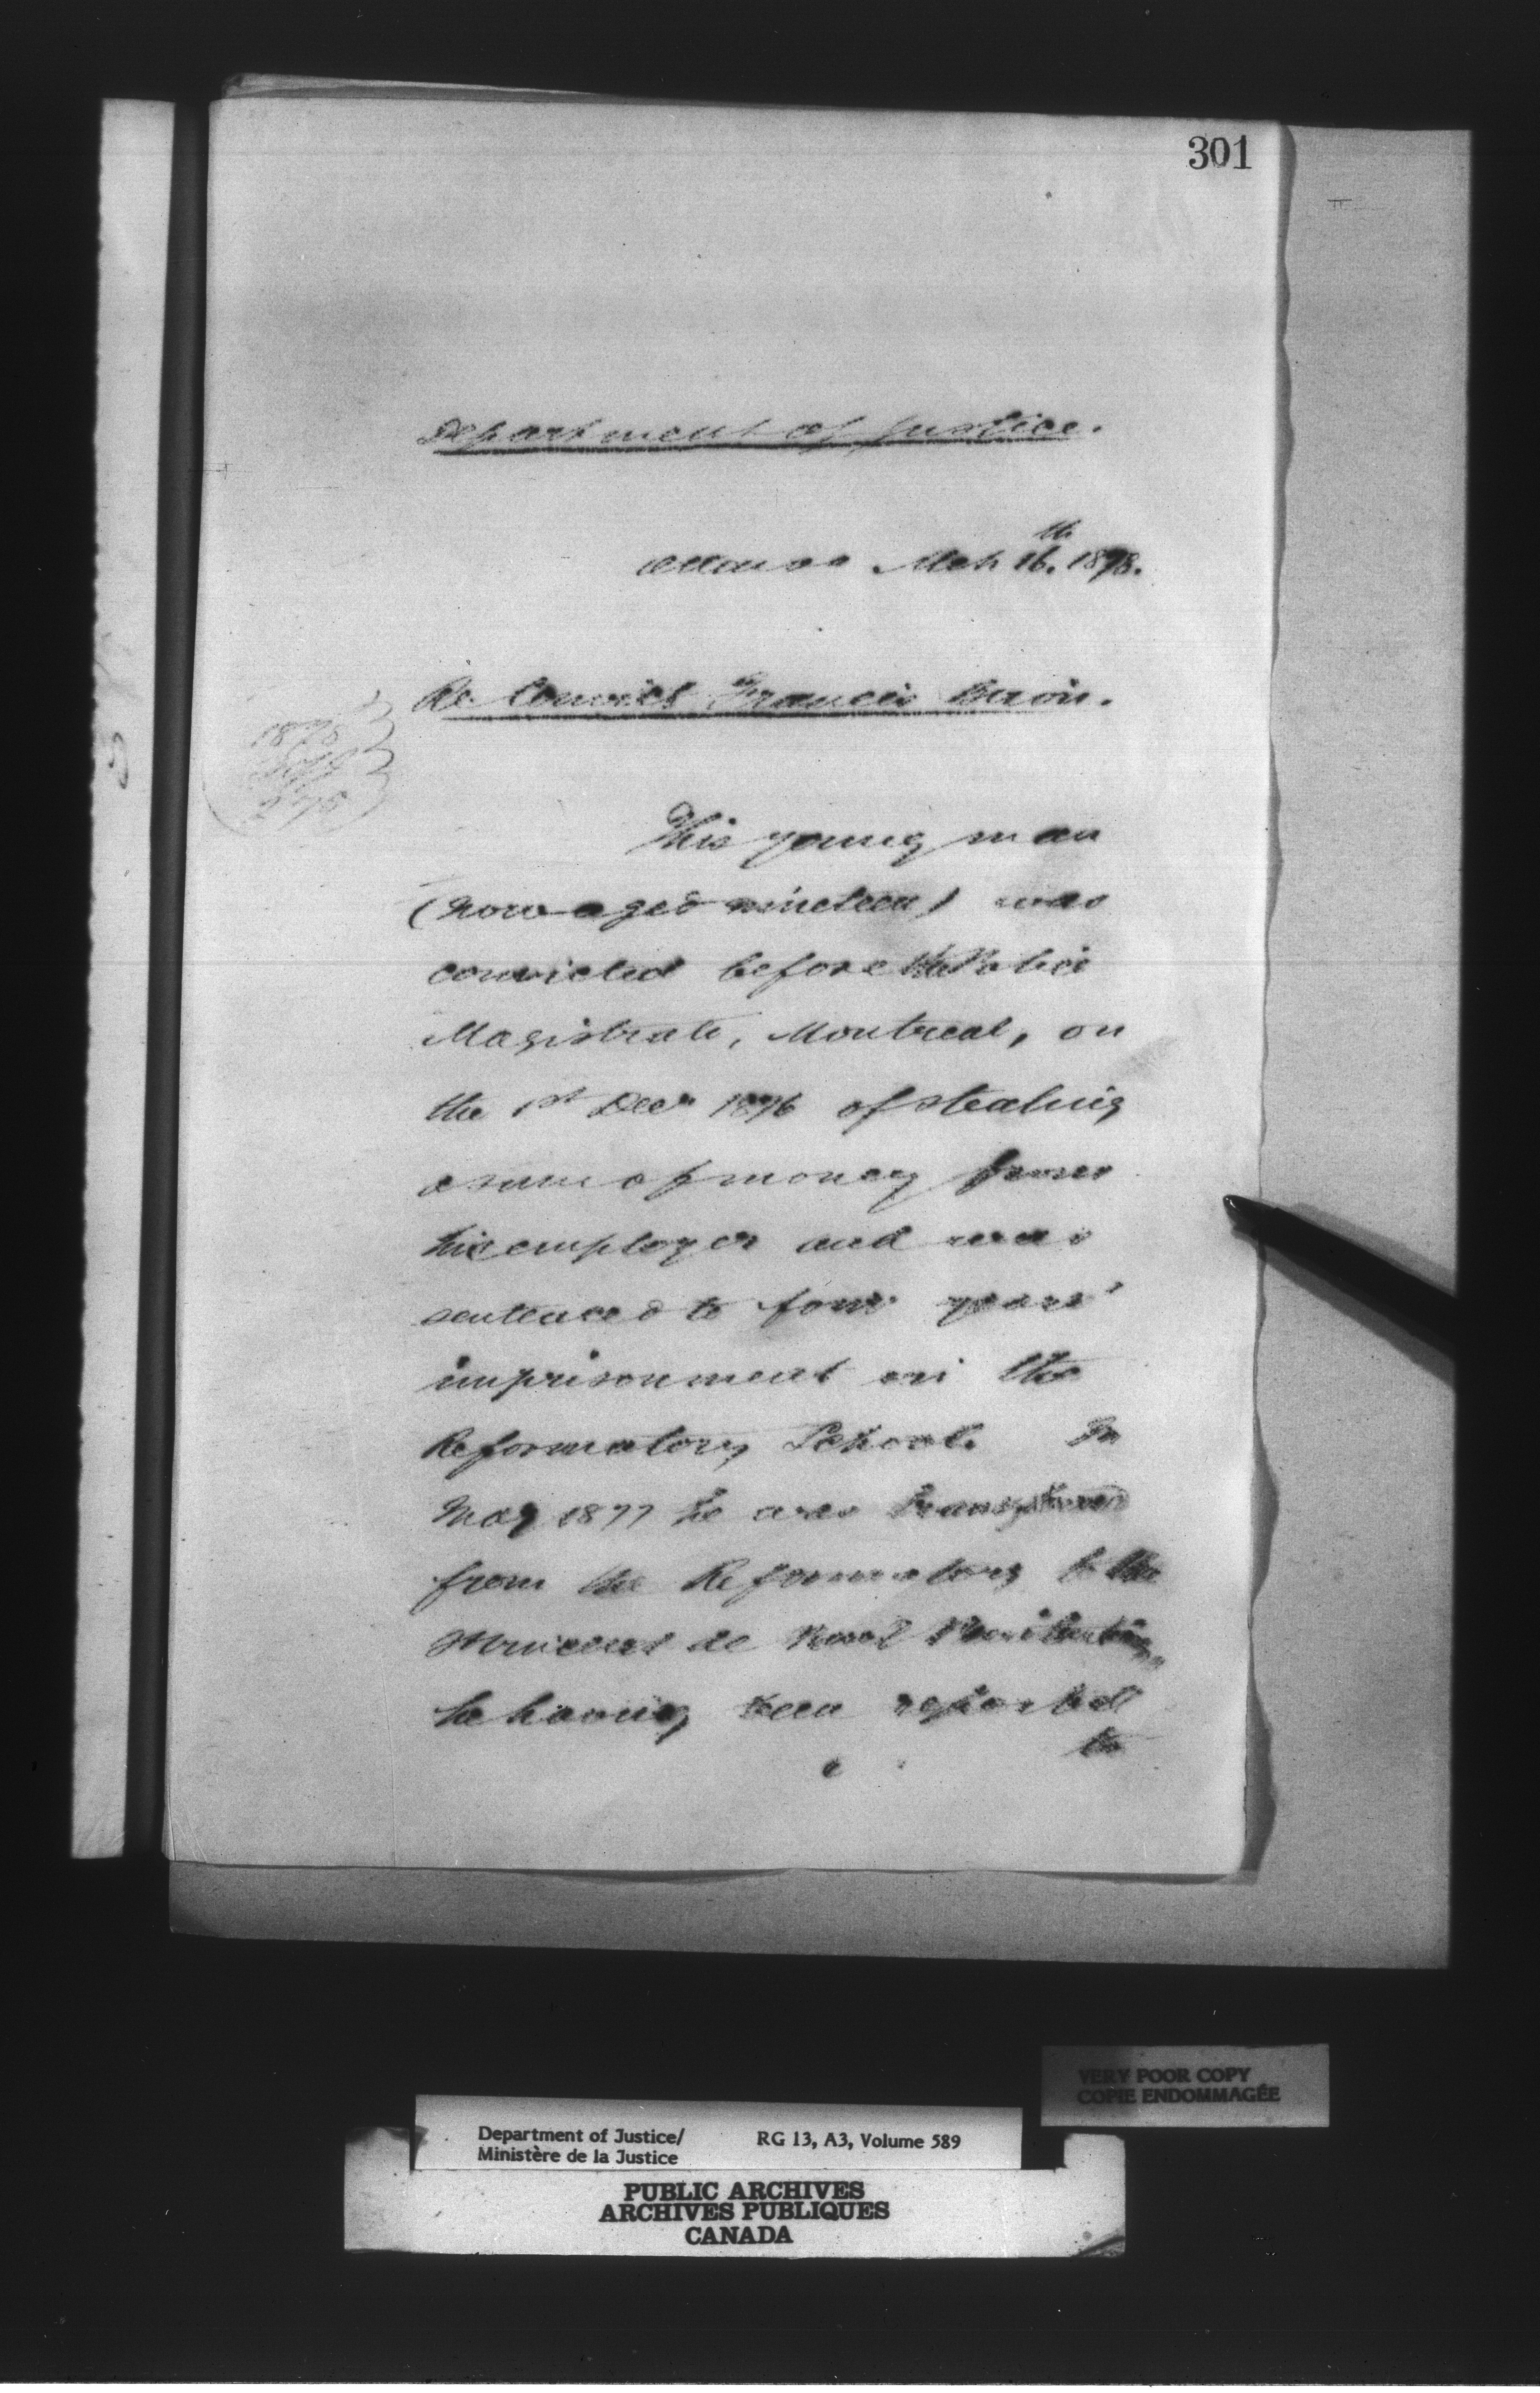 301
Department of Justice.
Ottawa Mch 16th. 1878.
Re Convict Francis
1878
This young man
(now aged nineteen) was
convicted before the Police
Magistrate, Montreal, on
the 1st Decr 1876 of stealing
a sum of money from
his employer and was
sentenced to four years'
imprisonment in the
Reformatory School. In
May 1877 he was transferred
from the Reformatory to the
St Vincent de Paul Penitentiary
he having been reported
to
VERY POOR COPY
COPIE ENDOMMAGÉE
Department of Justice/ RG 13, A3, Volume 589
Ministère de la Justice
PUBLIC ARCHIVES
ARCHIVES PUBLIQUES
CANADA